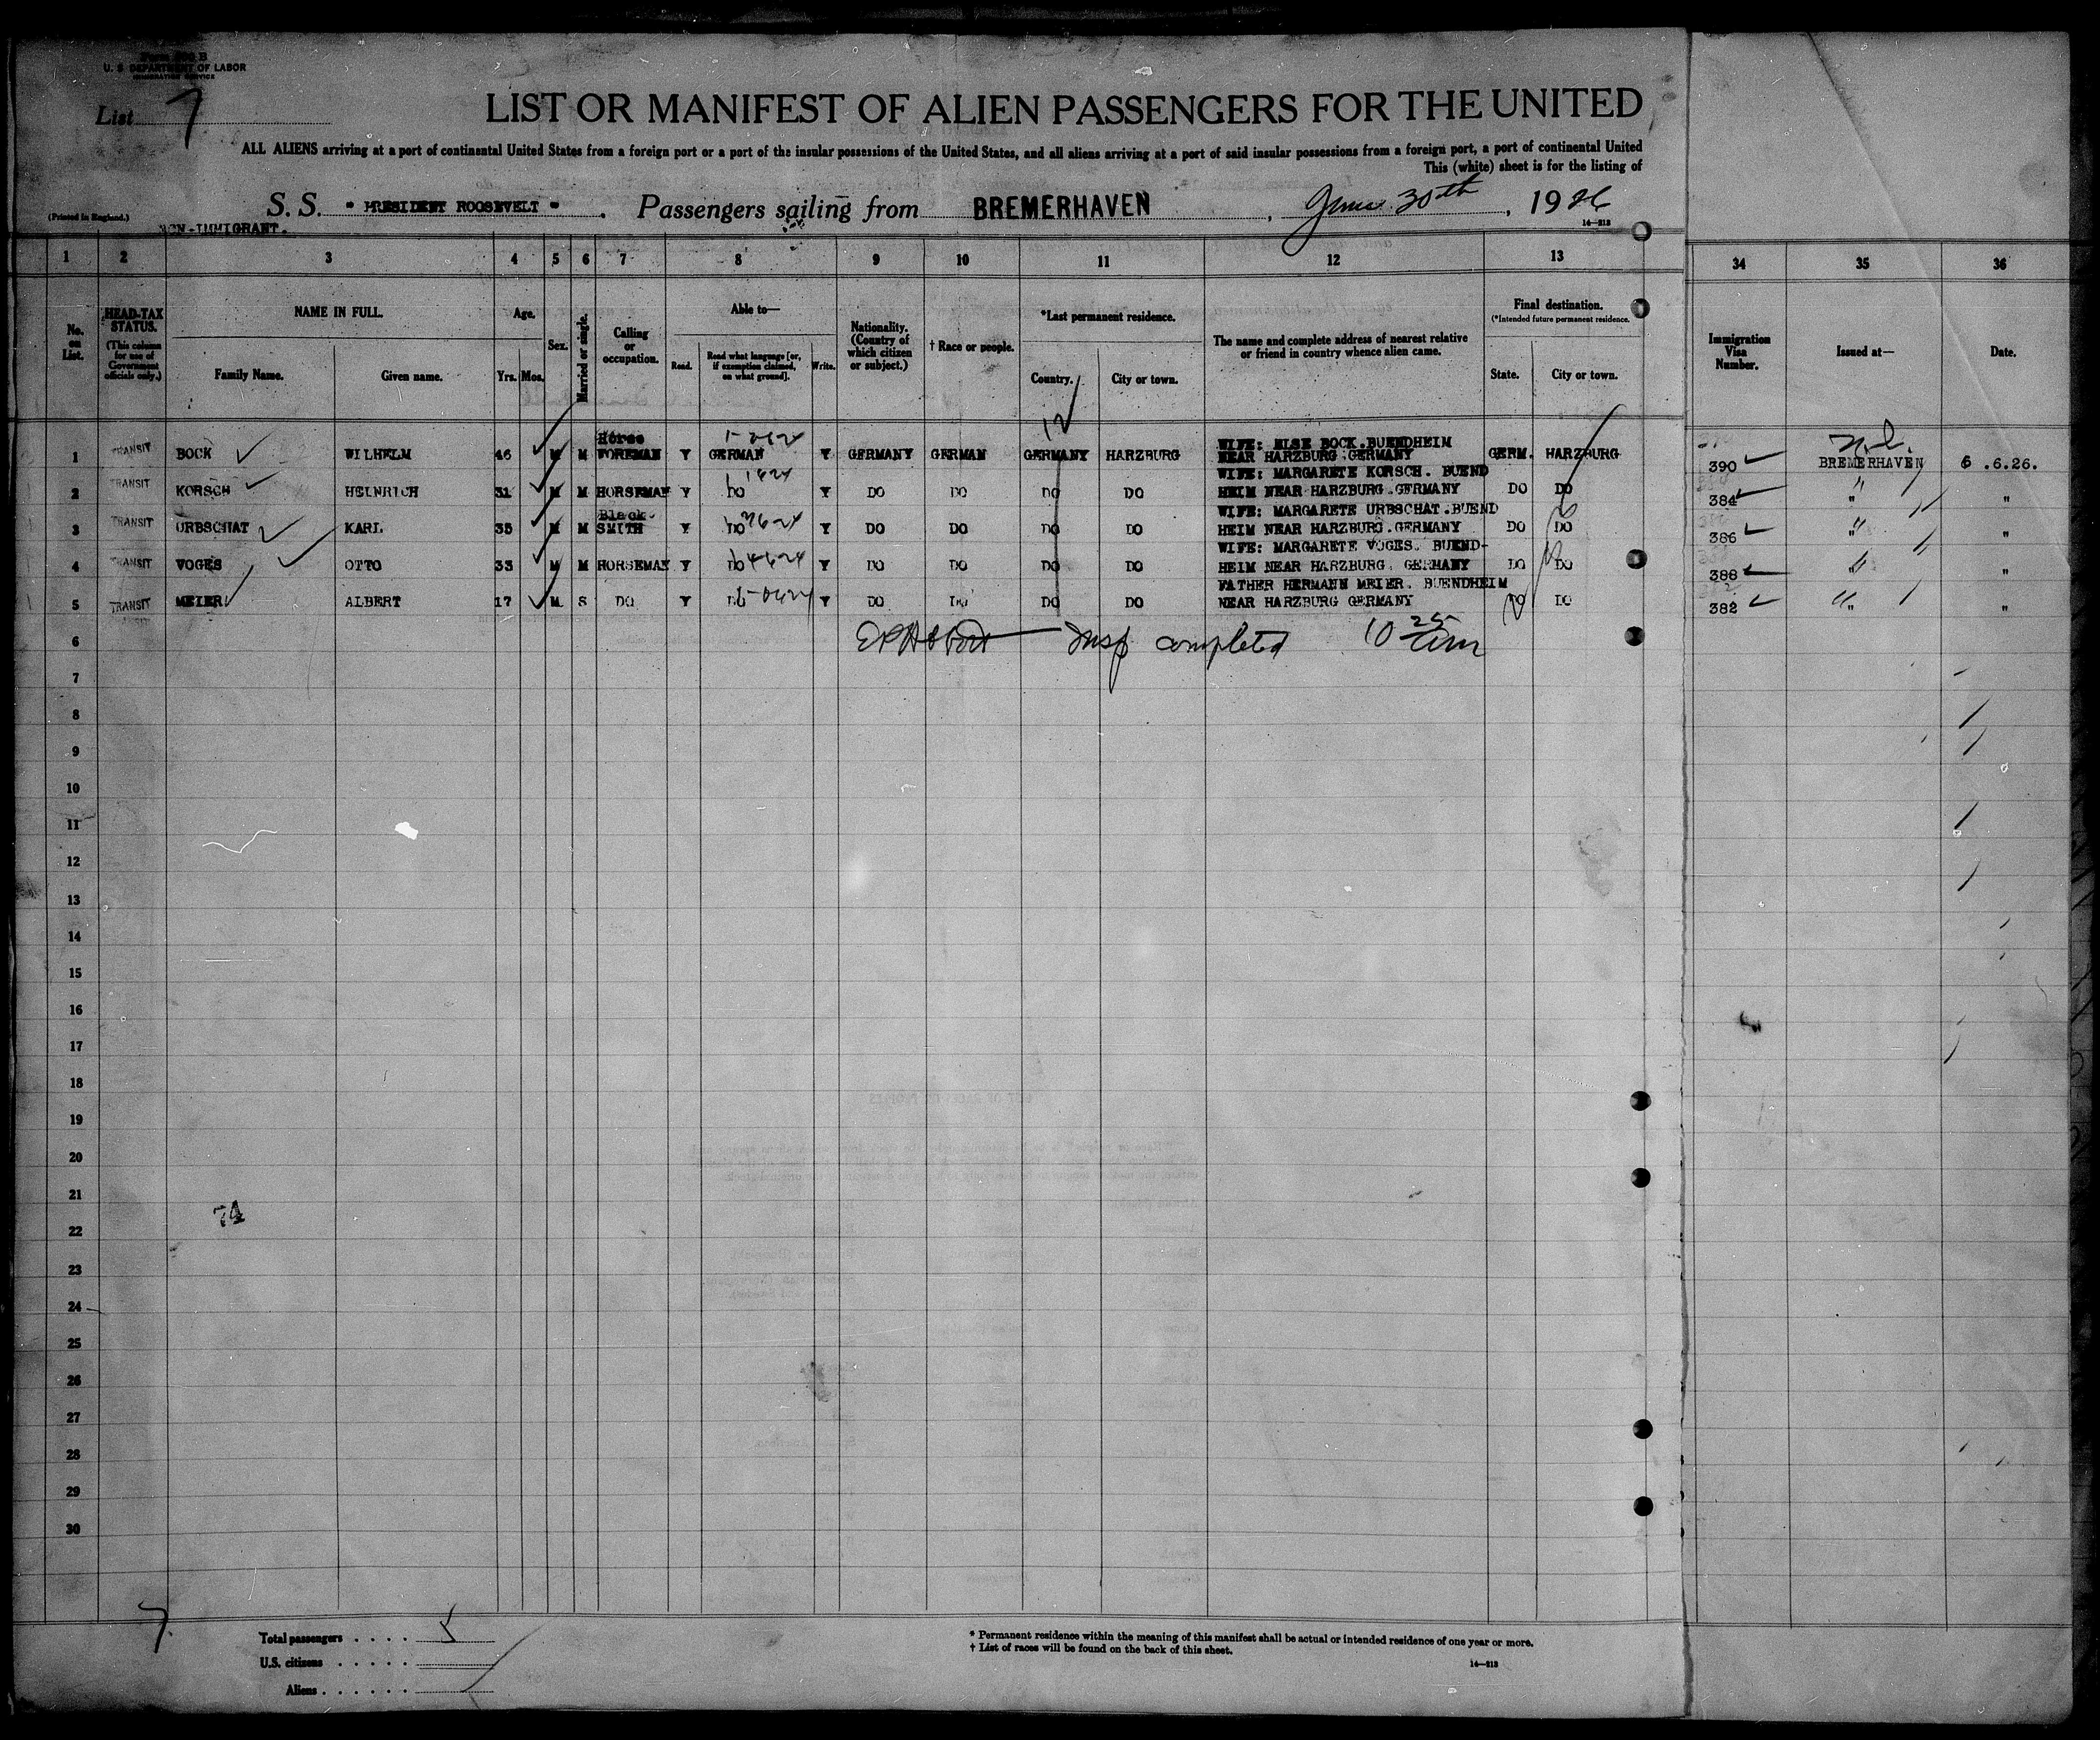 U. S. DEPARTMENT OF LABOR
IMMIGRATION SERVICE
List 7
LIST OR MANIFEST OF ALIEN PASSENGERS FOR THE UNITED
ALL ALIENS arriving at a port of continental United States from a foreign port or a port of the insular possessions of the United States, and all aliens arriving at a port of said insular possessions from a foreign port, a port of continental United
This (white) sheet is for the listing of
S. S. "PRESIDENT ROOSEVELT". Passengers sailing from BREMERHAVEN, June 30th, 1926
(Printed in England.)
NON-IMMIGRANT.
14—213
1 2 3 4 5 6 7 8 9 10 11 12 13 34 35 36
No. on List.
HEAD-TAX STATUS.
(This column for use of Government officials only.)
NAME IN FULL.
Family Name. Given name.
Age.
Yrs. Mos.
Sex.
Married or single.
Calling or occupation.
Able to—
Read. Read what language [or, if exemption claimed, on what ground]. Write.
Nationality. (Country of which citizen or subject.)
† Race or people.
*Last permanent residence.
Country. City or town.
The name and complete address of nearest relative or friend in country whence alien came.
Final destination.
(*Intended future permanent residence.
State. City or town.
Immigration Visa Number.
Issued at—
Date.
1 TRANSIT BOCK WILHELM 46 M M Horse FOREMAN Y GERMAN Y GERMANY GERMAN GERMANY HARZBURG WIFE: ELSE BOCK.BUENDHEIM NEAR HARZBURG.GERMANY GERM. HARZBURG 390 BREMERHAVEN 6.6.26.
2 TRANSIT KORSCH HEINRICH 31 M M HORSEMAN Y DO Y DO DO DO DO WIFE: MARGARETE KORSCH. BUEND HEIM NEAR HARZBURG.GERMANY DO DO 384 " "
3 TRANSIT URBSCHAT KARL 35 M M Black SMITH Y DO Y DO DO DO DO WIFE: MARGARETE URBSCHAT.BUEND HEIM NEAR HARZBURG.GERMANY DO DO 386 " "
4 TRANSIT VOGES OTTO 33 M M HORSEMAN Y DO Y DO DO DO DO WIFE: MARGARETE VOGES. BUEND- HEIM NEAR HARZBURG. GERMANY DO DO 388 " "
5 TRANSIT MEIER ALBERT 17 M S DO Y DO Y DO DO DO DO FATHER HERMANN MEIER. BUENDHEIM NEAR HARZBURG GERMANY DO DO 382 " "
6 Insp completed 10 25 am
7
8
9
10
11
12
13
14
15
16
17
18
19
20
21
74
22
23
24
25
26
27
28
29
30
7
Total passengers . . . . 5
U.S. citizens . . . . .
Aliens . . . . . .
* Permanent residence within the meaning of this manifest shall be actual or intended residence of one year or more.
† List of races will be found on the back of this sheet.
14—213